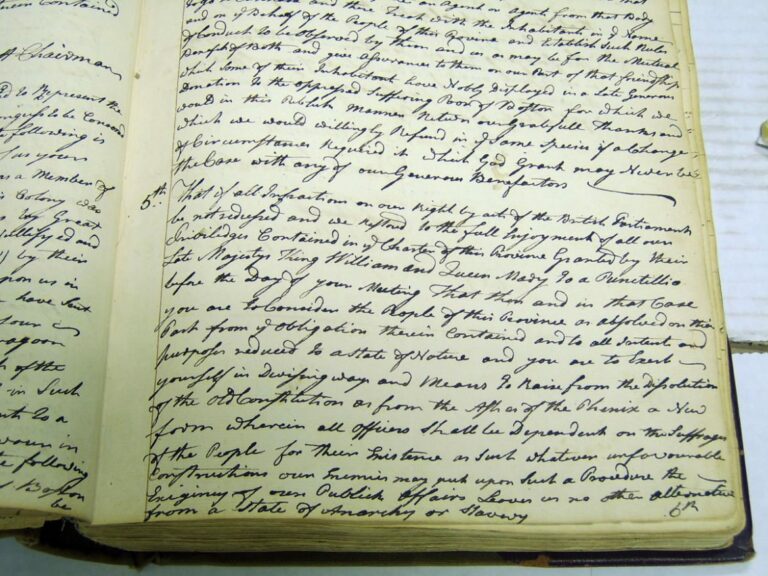 Contained
A Chairman
d to Represent the
following is
as yours
as a Member of
Colony was
us by Great
and
by their
upon us in
have Sent
of the
in Such
to a
in
following
of Boston
be
an Agent or Agents from that Body
and there Treat with the Inhabitants in yᵉ Name
and on yᵉ Behalf of the People of this Province and Establish Such Rules
of Conduct to be observed by them and us as may be for the Mutual
Benefit of Both and give Assurances to them on our Part of that friendship
which Some of their Inhabitants have Nobly Displayed in a Late Generous
Donation to the oppressed Suffering Poor of Boston for which we
would in this Publick Manner Return our Gratefull Thanks and
which we would willingly Refund in yᵉ Same Species if a Change
of Circumstances Required it which God Grant may Never be
the Case with any of our Generous Benefactors
5.th That if all Infractions on our Right by acts of the British Parliament
be not redressed and we restored to the full Enjoyment of all our
Priviledges Contained in yᵉ Charter of this Province Granted by their
Late Majestys King William and Queen Mary to a Punctillio
before the Day of your Meeting That then and in that Case
you are to Consider the People of this Province as absolved on their
Part from yᵉ obligation therein Contained and to all Intent and
purposes reduced to a State of Nature and you are to Exert
yourself in Devising ways and Means to Raise from the Dissolution
of the Old Constitution as from the Ashes of the Phenix a New
form wherein all officers Shall be Dependent on the Suffrages
of the People for their Existence as Such whatever unfavourable
Constructions our Enemies may put upon Such a Procedure the
Exigency of our Publick Affairs Leaves us no other alternative
from a State of Anarchy or Slavery
6th